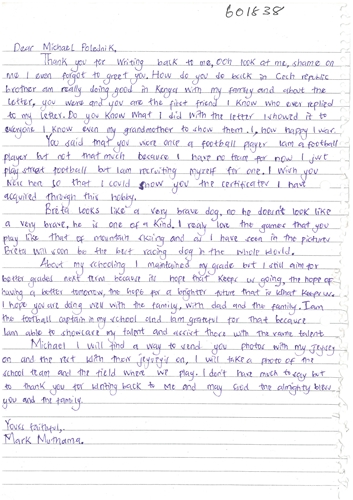 601838
Dear Michael Polednik.
Thank you for writing back to me, ooh look at me, shame on
me I even forgot to greet you. How do you do back in Cech repubic
brother am really doing good in Kenya with my family and about the
letter, you were and you are the first friend I know who ever replied
to my letter. Do you know what I did with the letter I showed it to
everyone I know even my grandmother to show them. I, how happy I was.
You said that you were once a football player. Iam a football
player but not that much because I have no team for now I just
play street football but Iam recruiting myself for one. I wish you
were here so that I could show you the certificates I have
acquired through this hobby.
Breta looks like a very brave dog, no he doesn't look like
a very brave, he is one of a kind. I realy love the games that you
play like that of mountain skiing and as I have seen in the picture
Breta will soon be the best racing dog in the whole world.
About my schooling I maintained my grade but I still aim for
better grades next term because its hope that keeps us going, the hope of
having a better tomorrow, the hope for a brighter future that is what keeps us.
I hope you are doing well with the family, with dad and the family. Iam
the football captain in my school and iam grateful for that because
Iam able to showcase my talent and assist those with the same talent.
Michael I will find a way to send you photos with my jeysey
on and the rest with their jeysey's on, I will take a photo of the
school team and the field where we play. I don't have much to say but
to thank you for writing back to me and may God the almighty bless
you and the family.
Yours faithful,
Mark Muthama.